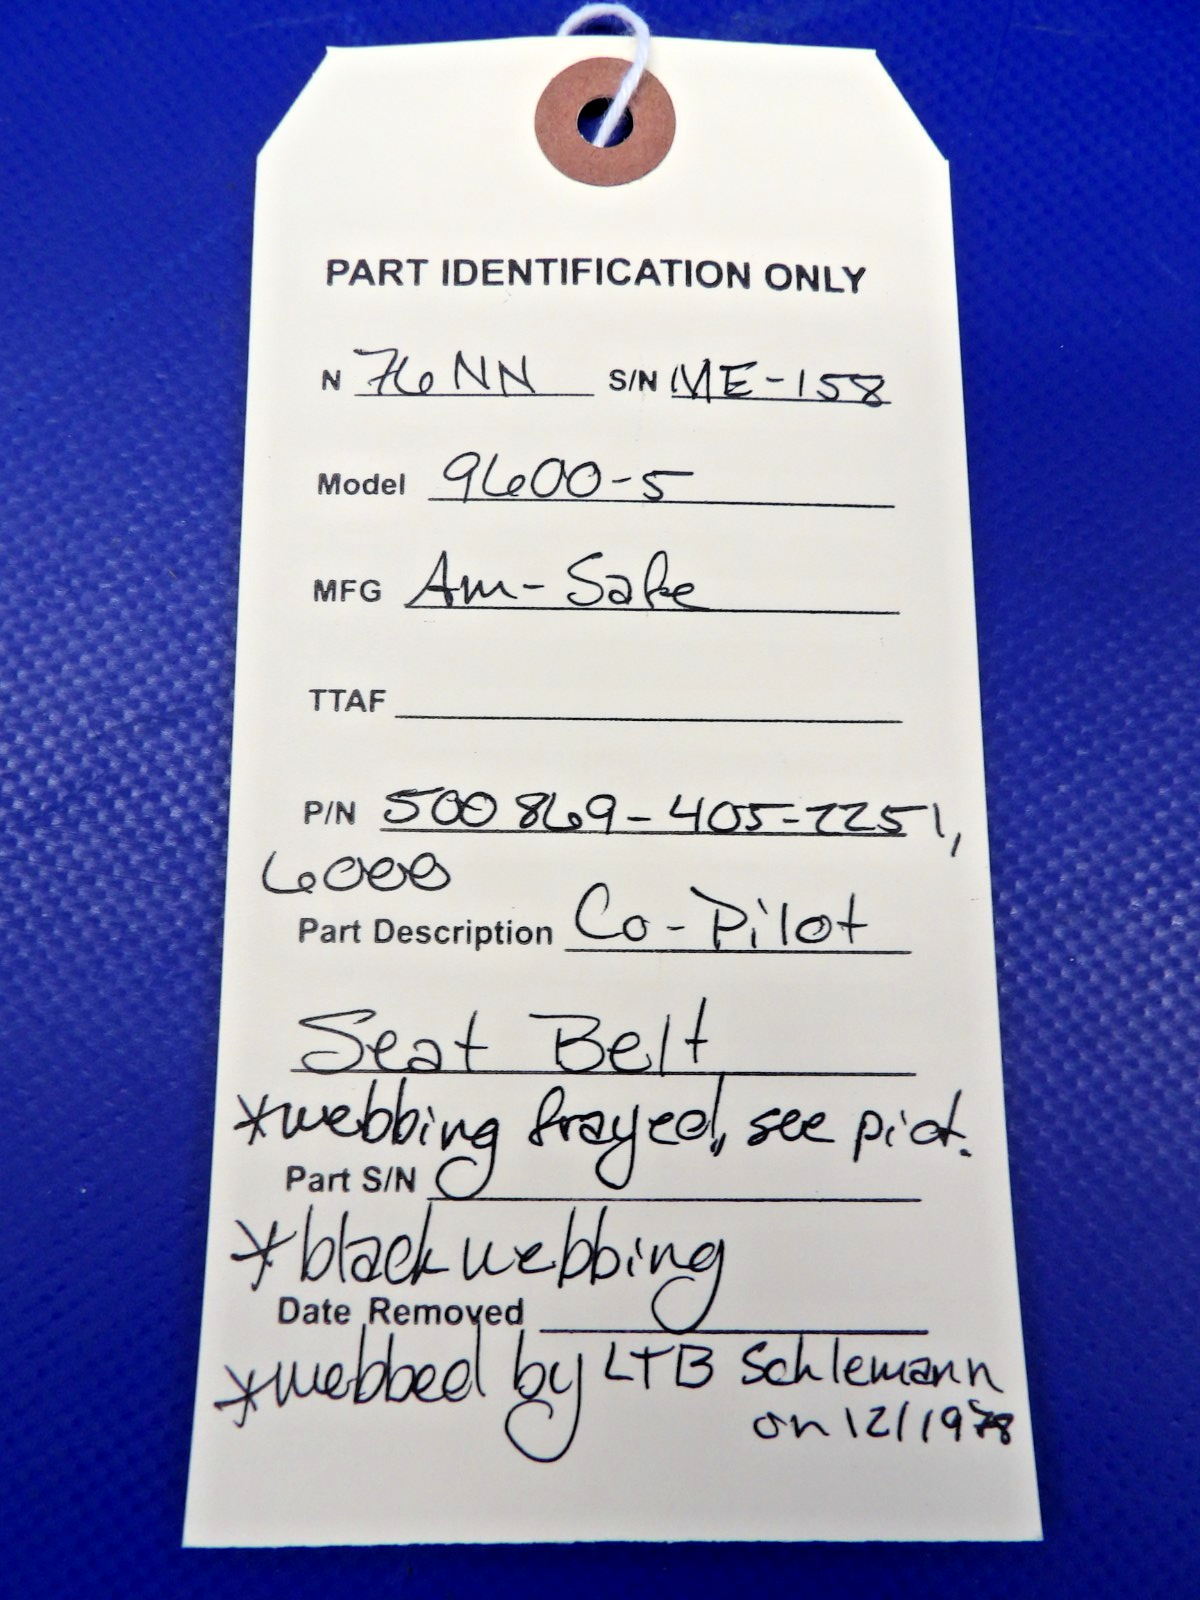 PART IDENTIFICATION ONLY
N 76NN S/N ME-158
Model 9600-5
MFG Am-Safe
TTAF
P/N 500869-405-2251,
6000
Part Description Co-Pilot
Seat Belt
*webbing frayed, see pict.
Part S/N
*black webbing
Date Removed
*webbed by LTB Schlemann
on 12/1978